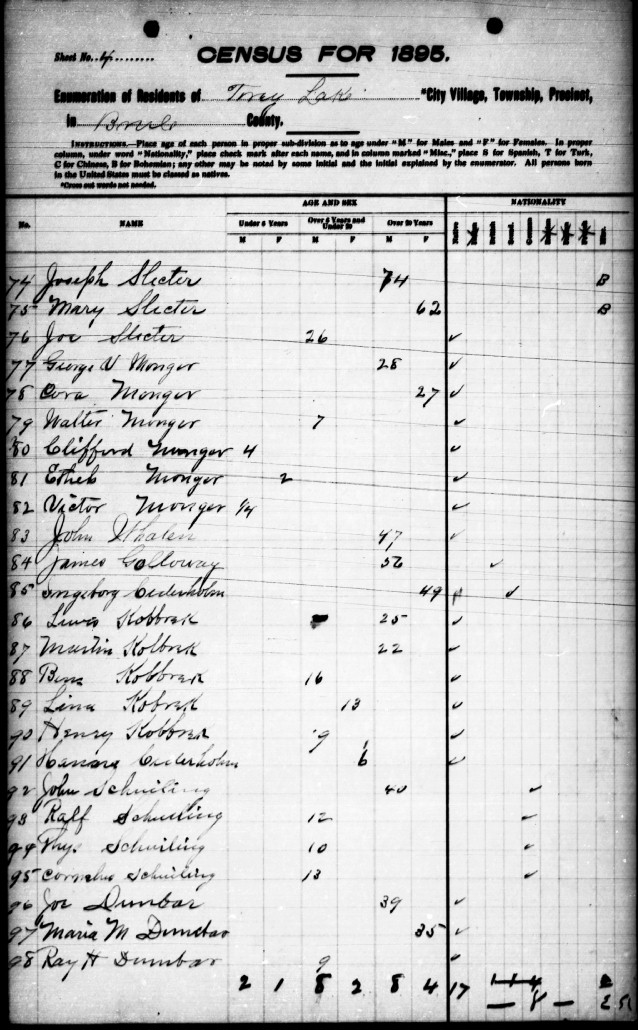 Sheet No.
CENSUS FOR 1895.
Enumeration of Residents of Torey Lake "City Village, Township, Precinct,
in Brule County.
INSTRUCTIONS.—Place age of each person in proper sub-division as to age under "M" for Males and "F" for Females. In proper
column, under word "Nationality," place check mark after each name, and in column marked "Misc.," place S for Spanish, T for Turk,
C for Chinese, B for Bohemian; any other may be noted by some initial and the initial explained by the enumerator. All persons born
in the United States must be classed as natives.
*Cross out words not needed.
No. NAME AGE AND SEX NATIONALITY
Under 6 Years Over 6 Years and Under 20 Over 20 Years Native
M F M F M F
74 Joseph Slecter 74 B
75 Mary Slecter 62 B
76 Joe Slecter 26 ✓
77 George V Monger 28 ✓
78 Cora Monger 27 ✓
79 Walter Monger 7 ✓
80 Clifford Monger 4 ✓
81 Ethel Monger 2 ✓
82 Victor Monger 1/4 ✓
83 John Whalen 47 ✓
84 James Golloway 56 ✓
85 Ingeborg Cederholm 49 ✓
86 Lewis Kobbrek 25 ✓
87 Martin Kolbrek 22 ✓
88 Bena Kobbrek 16 ✓
89 Lina Kobrek 13 ✓
90 Henry Kobbrek 9 ✓
91 Cederholm 6 ✓
92 John Schuiling 40 ✓
93 Ralf Schuiling 12 ✓
94 Thys Schuiling 10 ✓
95 Cornelus Schuiling 13 ✓
96 Joe Dunbar 39 ✓
97 Maria M Dunbar 35 ✓
98 Ray H Dumbar 9 ✓
2 1 8 2 8 4 17 1 1 4 2
8 25